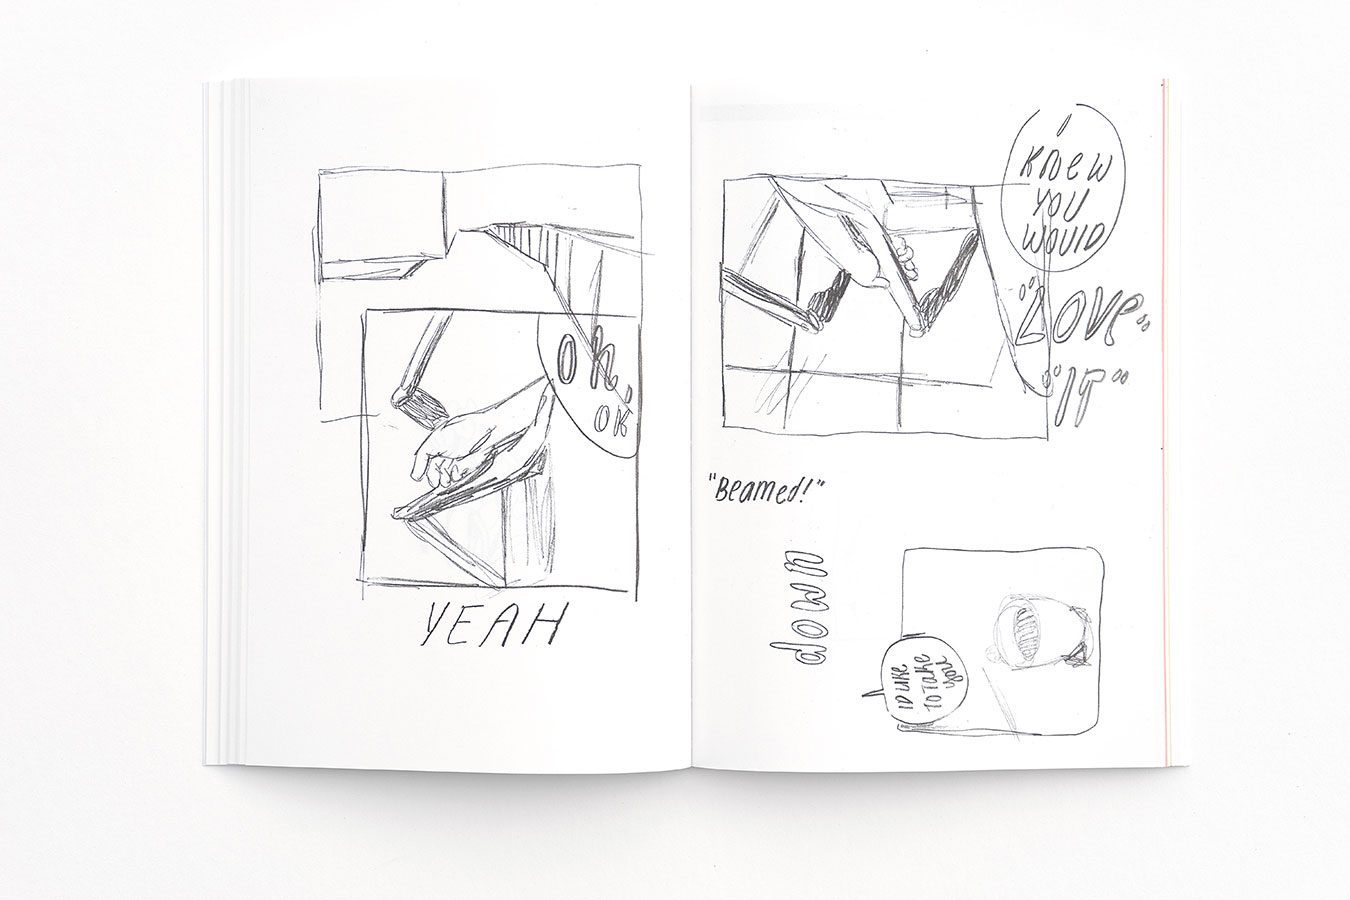 OH,
OK
YEAH
I
KNEW
YOU
WOULD
"LOVE"
"IT"
"Beamed!"
down
ID LIKE
TO TAKE
YOU